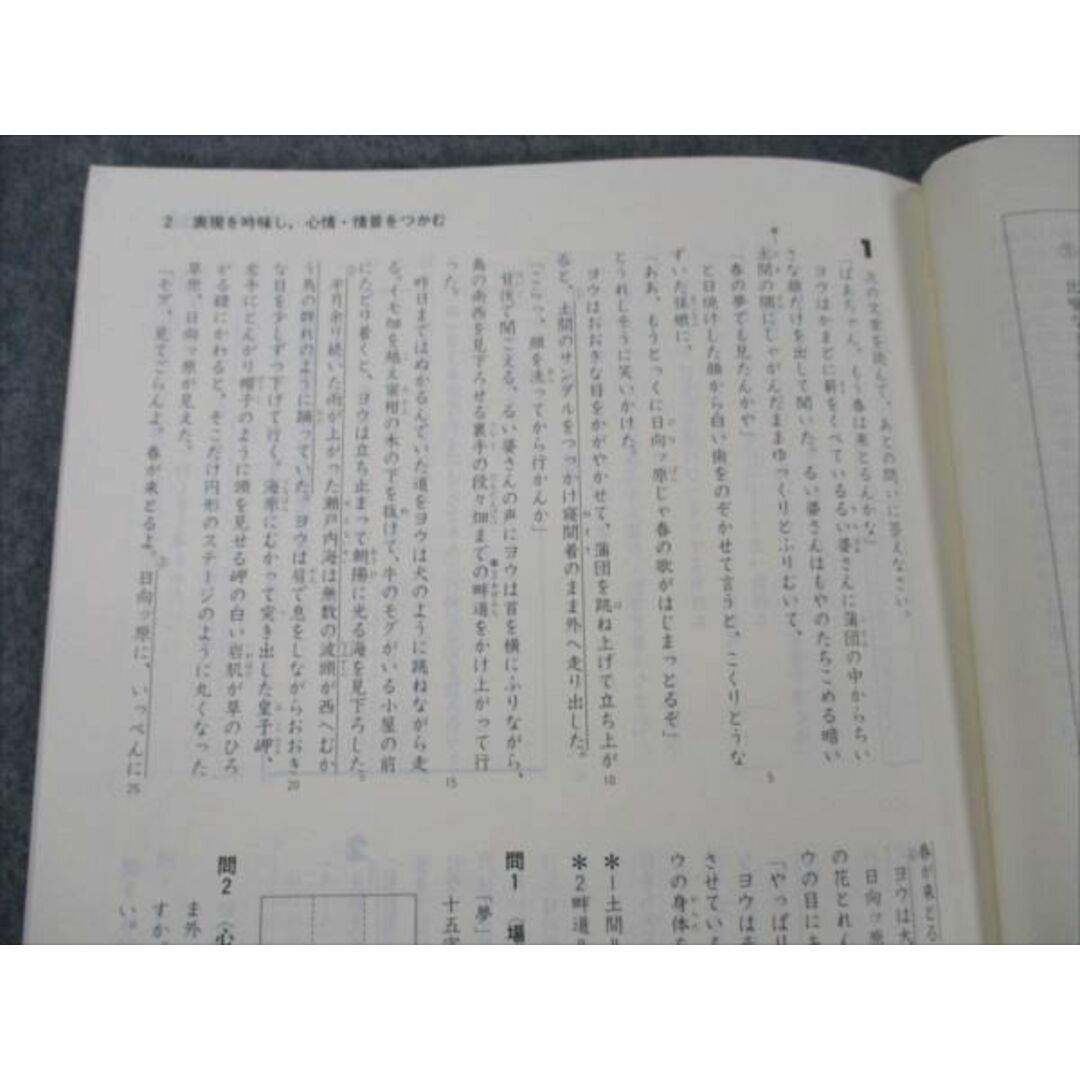 2 表現を吟味し，心情・情景をつかむ
1 次の文章を読んで，あとの問いに答えなさい。
「ばあちゃん，もう春は来とるんかな」
ヨウはかまどに薪をくべているるい婆さんに蒲団の中からちい
さな顔だけを出して聞いた。るい婆さんはもやのたちこめる暗い
土間の隅にしゃがんだままゆっくりとふりむいて，
「春の夢でも見たんかや」
と日焼けした顔から白い歯をのぞかせて言うと，こくりとうな
ずいた孫娘に，
「ああ，もうとっくに日向ッ原じゃ春の歌がはじまっとるぞ」
とうれしそうに笑いかけた。
ヨウはおおきな目をかがやかせて，蒲団を跳ね上げて立ち上が
ると，土間のサンダルをつっかけ寝間着のまま外へ走り出した。
「こらっ，顔を洗ってから行かんか」
背後で聞こえる，るい婆さんの声にヨウは首を横にふりながら，
島の南西を見下ろせる裏手の段々畑までの畔道をかけ上がって行
った。
昨日まではぬかるんでいた道をヨウは犬のように跳ねながら走
る。イモ畑を越え蜜柑の木の下を抜けて，牛のモグがいる小屋の前
にたどり着くと，ヨウは立ち止まって朝陽に光る海を見下ろした。
半月余り続いた雨が上がった瀬戸内海は無数の波頭が西へむか
う鳥の群れのように踊っていた。ヨウは肩で息をしながらおおき
な目を少しずつ下げて行く。海原にむかって突き出した皇子岬，
左手にとんがり帽子のように頭を見せる岬の白い岩肌が草のひろ
がる緑にかわると，そこだけ円形のステージのように丸くなった
草原，日向ッ原が見えた。
「モグ，見てごらんよ。春が来とるよ。日向ッ原に，いっぺんに
5
10
15
20
25
春が来とる
ヨウは大
日向ッ原
の花とれん
ウの目に
「やっぱり
ヨウは
させてい
ウの身体
＊1土間
＊2畔道
問1 〈場
「夢」
十五字
問2 〈心
ま外
すか
い。